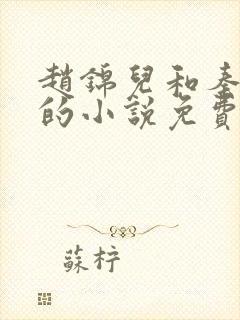 趙錦兒和秦
的小說免費
蘇柠